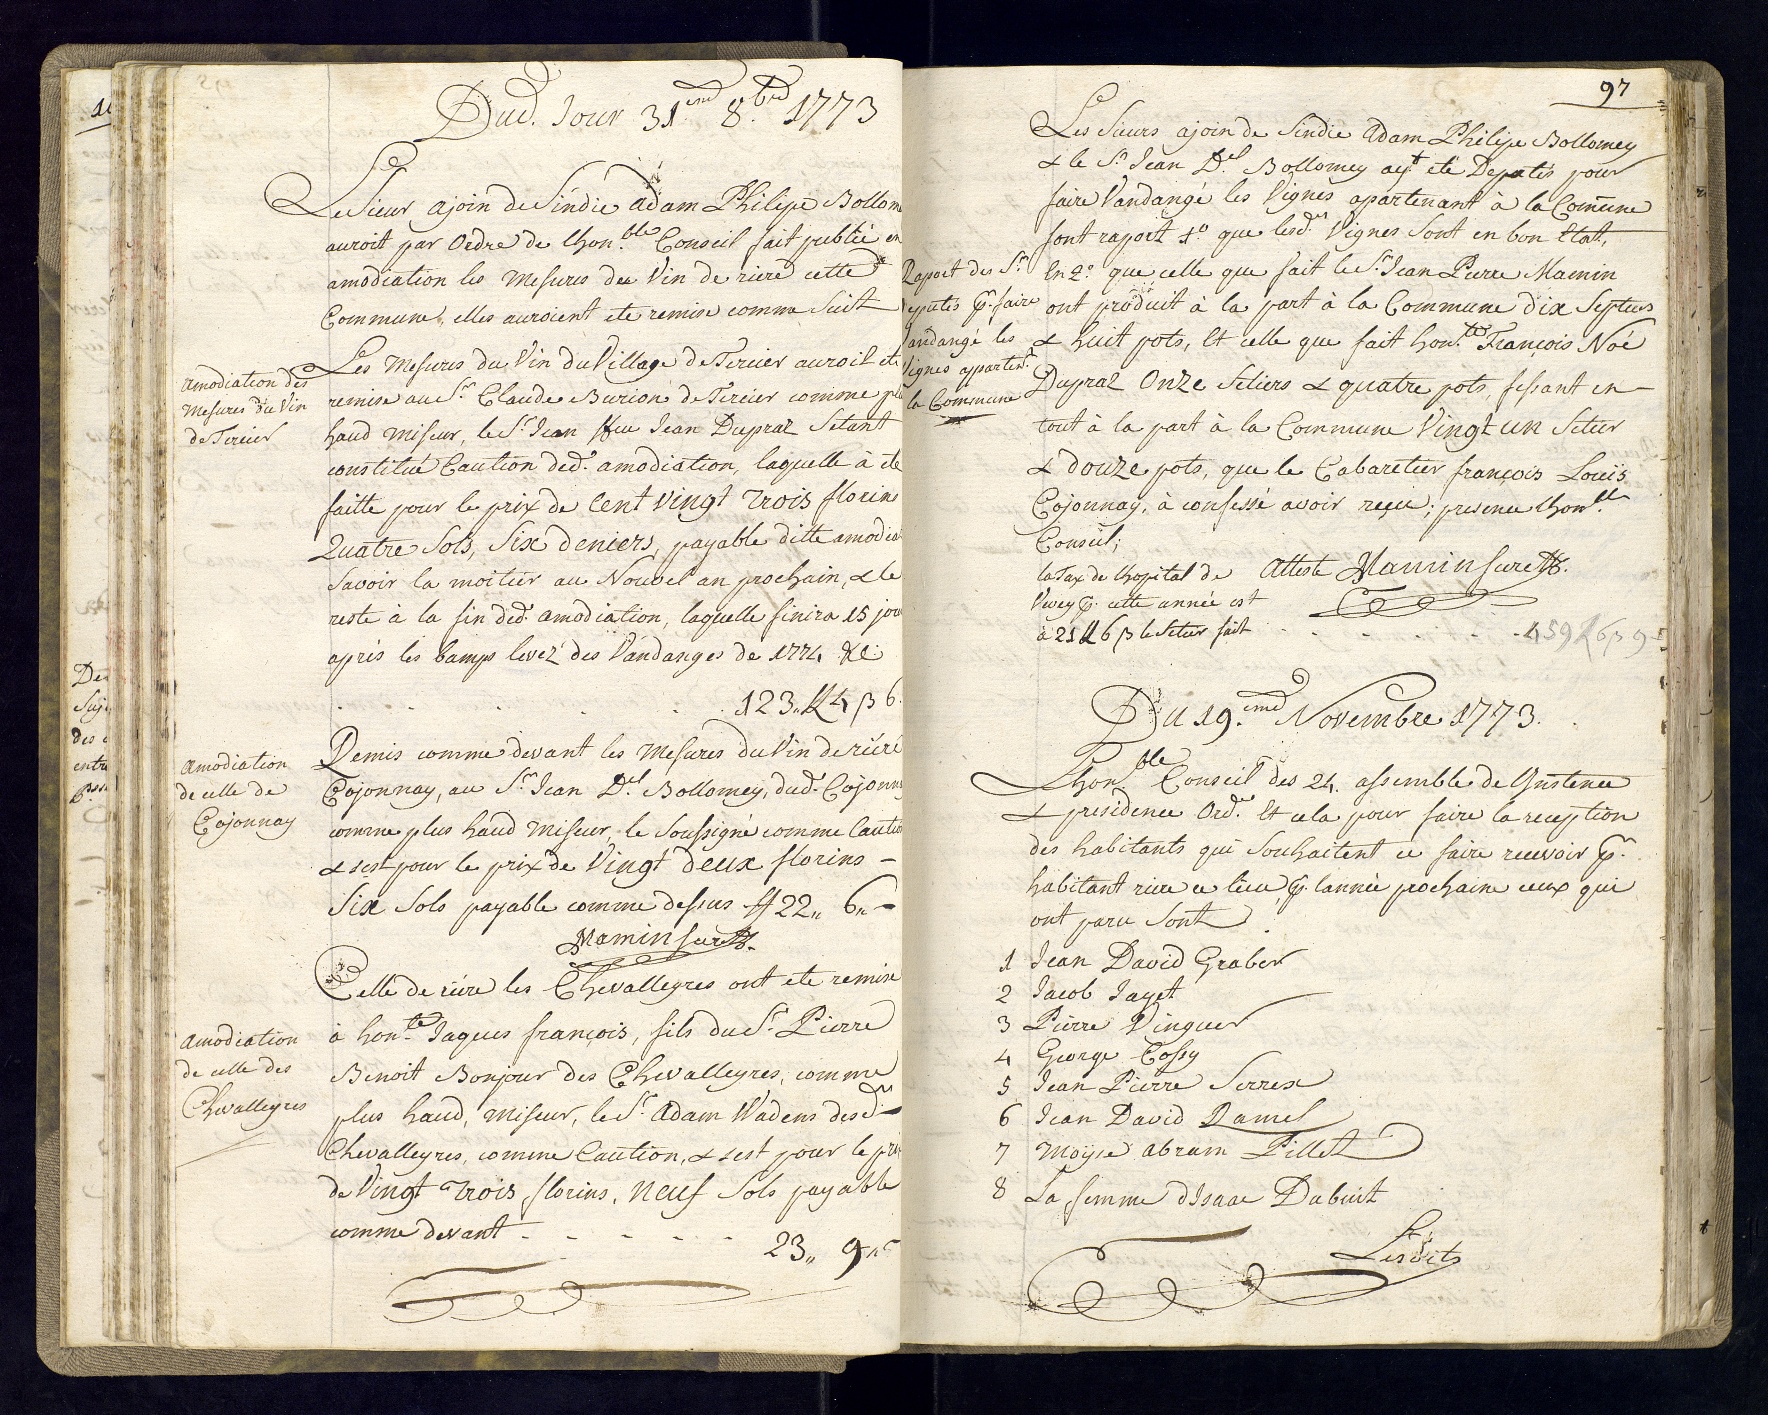 Dud. Jour 31.eme 8.bre 1773
Le Sieur ajoin de Sindic adam Philipe Bollom
auroit par Ordre de lhon.ble Conseil fait publié en
amodiation les Mesures du Vin de riere cette
Commune, elles auroient ete remise comme Suit
amodiation des
Mesures du Vin
de Tercier
Les Mesures du Vin du Village de Tercier auroit ete
remise au S.r Claude Burion de Tercier comme plus
haud Miseur, le S.r Jean ffeu Jean Dupraz Setant
constitué Caution ded.e amodiation, laquelle à ete
faitte pour le prix de Cent Vingt Trois florins
Quatre Sols, Six deniers, payable ditte amodia
Savoir la moitier au Nouvel an prochain, & le
reste à la fin ded.e amodiation, laquelle finira 15 jour
aprés les bamps levez des Vandanges de 1774. &c:
123.. ff 4 β 6.
amodiation
de celle de
Cojonnay
Remis comme devant les Mesures du Vin de riére
Cojonnay, au S.r Jean D.el Bollomey, dud.t Cojonnay
comme plus haud Miseur, le Soussigné comme Caution
& sest pour le prix de Vingt deux florins –
Six Sols payable comme dessus ff 22,, 6,, –
Mamin Secret.
amodiation
de celle des
Chevalleyres
Celle de riére les Chevalleyres ont ete remise
à hon.te Jaques françois, fils du S.r Pierre
Benoit Bonjour des Chevalleyres, comme
plus haud, Miseur, le S.r Adam Wadens desd.
Chevalleyres, comme Caution, & sest pour le prix
de Vingt Trois florins, neuf Sols payable
comme devant - - - - - -
23,, 9,, -
97
Les Sieurs ajoin de Sindic Adam Philipe Bollomey
& le S.r Jean D.el Bollomey ayt eté Deputés pour
faire Vandangé les Vignes apartenant à la Comune
font raport 1.o que lesd.es Vignes Sont en bon Etat,
Raport des S.rs
Deputés p.r faire
Vandangé les
Vignes appartent.
la Commune
En 2.o que celle que fait le S.r Jean Pierre Mamin
ont produit à la part à la Commune dix Septiers
& huit pots, Et celle que fait hon.te François Noé
Dupraz Onze Setiers & quatre pots, fessant en –
tout à la part à la Commune Vingt un Setier
& douze pots, que le Cabaretier françois Louïs
Cojonnay, à confessé avoir reçu; presence lhon.ble
Conseil;
Atteste Mamin Secret.
la Tax de lhopital de
Vevey p.r cette année est
à 21 ff 6 β le Setier fait - - - - - 459 ff 6 β 9
Du 19.eme Novembre 1773.
Lhon.ble Conseil des 24. assemble de Ynstence
& presidence Ord.e Et cela pour faire la reception
des habitants qui Souhaitent ce faire recevoir p.r
habitant riere ce lieu p.r lannée prochaine ceux qui
ont paru Sont
1 Jean David Graber
2 Jacob Jayet
3 Piérre Vinguer
4 George Cossy
5 Jean Pierre Serrex
6 Jean David Ramel
7 Moÿse Abram Pillet
8 La femme dIsaac Dubuit
Lesdits